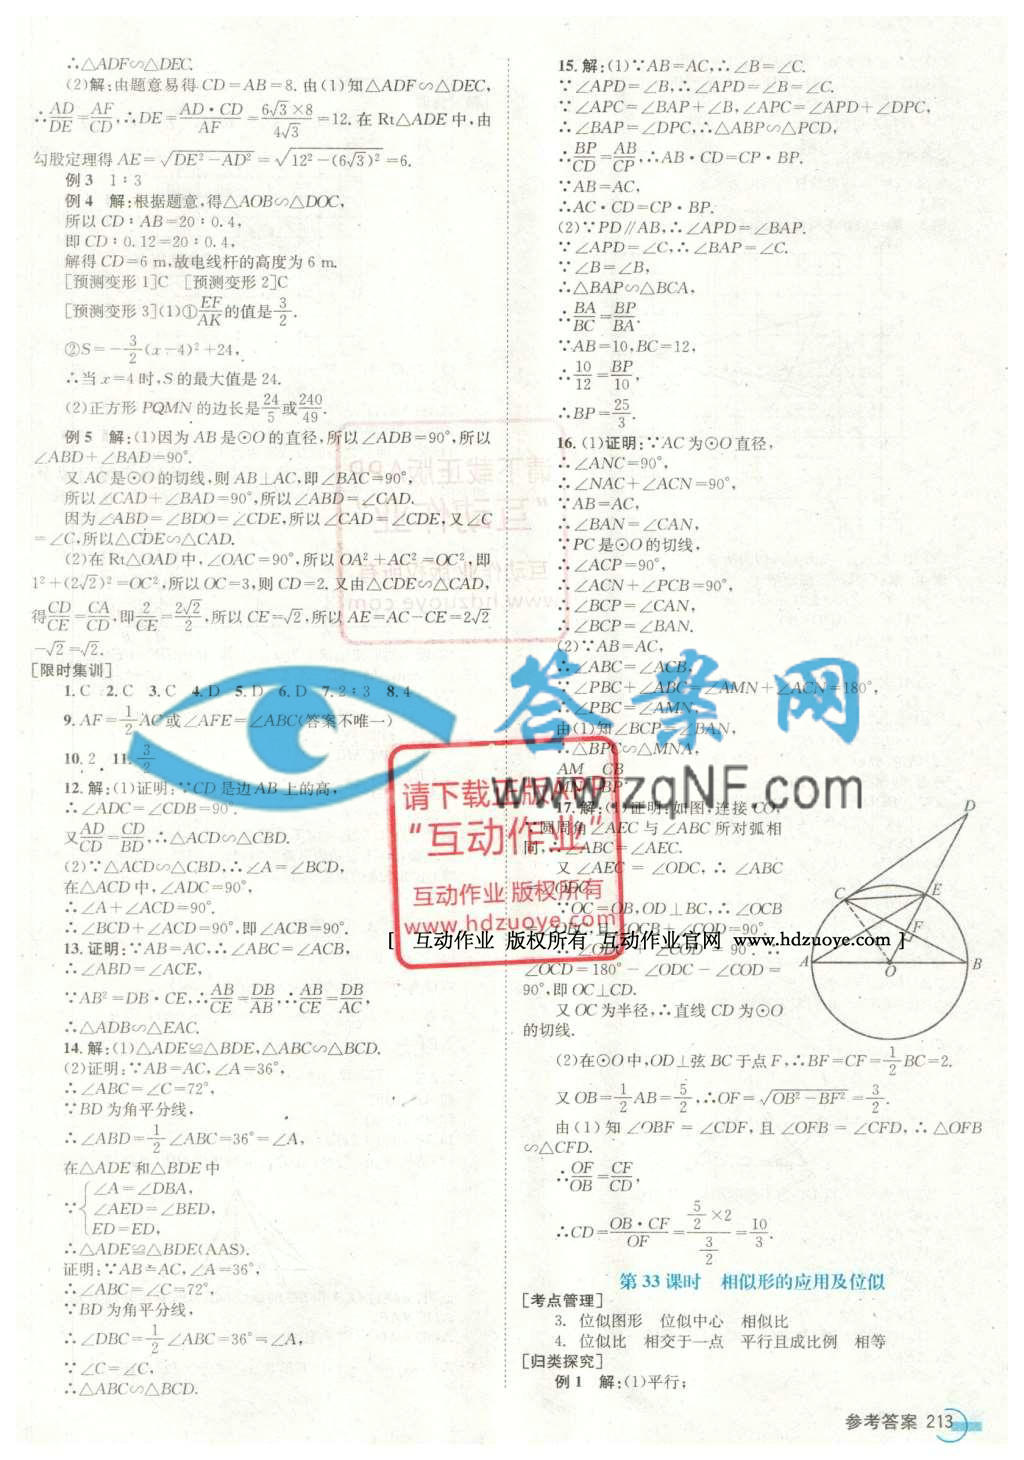 ∴△ADF∽△DEC.
(2)解:由题意易得 CD=AB=8. 由(1)知△ADF∽△DEC,
∴AD/DE=AF/CD,∴DE=AD·CD/AF=6√3×8/4√3=12. 在 Rt△ADE 中,由
勾股定理得 AE=√(DE²-AD²)=√(12²-(6√3)²)=6.
例 3 1∶3
例 4 解:根据题意,得△AOB∽△DOC,
所以 CD∶AB=20∶0.4,
即 CD∶0.12=20∶0.4,
解得 CD=6 m,故电线杆的高度为 6 m.
[预测变形 1]C [预测变形 2]C
[预测变形 3](1)①EF/AK的值是3/2.
②S=-3/2(x-4)²+24,
∴当 x=4 时,S 的最大值是 24.
(2)正方形 PQMN 的边长是24/5或240/49.
例 5 解:(1)因为 AB 是⊙O 的直径,所以∠ADB=90°,所以
∠ABD+∠BAD=90°.
又 AC 是⊙O 的切线,则 AB⊥AC,即∠BAC=90°,
所以∠CAD+∠BAD=90°,所以∠ABD=∠CAD.
因为∠ABD=∠BDO=∠CDE,所以∠CAD=∠CDE,又∠C
=∠C,所以△CDE∽△CAD.
(2)在 Rt△OAD 中,∠OAC=90°,所以 OA²+AC²=OC²,即
1²+(2√2)²=OC²,所以 OC=3,则 CD=2. 又由△CDE∽△CAD,
得CD/CE=CA/CD,即2/CE=2√2/2,所以 CE=√2,所以 AE=AC-CE=2√2
-√2=√2.
[限时集训]
1. C 2. C 3. C 4. D 5. D 6. D 7. 2∶3 8. 4
9. AF=1/2AC 或∠AFE=∠ABC(答案不唯一)
10. 2 11. 3/2
12. 解:(1)证明:∵CD 是边 AB 上的高,
∴∠ADC=∠CDB=90°.
又AD/CD=CD/BD,∴△ACD∽△CBD.
(2)∵△ACD∽△CBD,∴∠A=∠BCD,
在△ACD 中,∠ADC=90°,
∴∠A+∠ACD=90°,
∴∠BCD+∠ACD=90°,即∠ACB=90°.
13. 证明:∵AB=AC,∴∠ABC=∠ACB,
∴∠ABD=∠ACE,
∵AB²=DB·CE,∴AB/CE=DB/AB,∴AB/CE=DB/AC,
∴△ADB∽△EAC.
14. 解:(1)△ADE≌△BDE,△ABC∽△BCD.
(2)证明:∵AB=AC,∠A=36°,
∴∠ABC=∠C=72°,
∵BD 为角平分线,
∴∠ABD=1/2∠ABC=36°=∠A,
在△ADE 和△BDE 中
∵{∠A=∠DBA,
∠AED=∠BED,
ED=ED,
∴△ADE≌△BDE(AAS).
证明:∵AB=AC,∠A=36°,
∴∠ABC=∠C=72°,
∵BD 为角平分线,
∴∠DBC=1/2∠ABC=36°=∠A,
∵∠C=∠C,
∴△ABC∽△BCD.
15. 解:(1)∵AB=AC,∴∠B=∠C.
∵∠APD=∠B,∴∠APD=∠B=∠C.
∵∠APC=∠BAP+∠B,∠APC=∠APD+∠DPC,
∴∠BAP=∠DPC,∴△ABP∽△PCD,
∴BP/CD=AB/CP,∴AB·CD=CP·BP.
∵AB=AC,
∴AC·CD=CP·BP.
(2)∵PD∥AB,∴∠APD=∠BAP.
∵∠APD=∠C,∴∠BAP=∠C.
∵∠B=∠B,
∴△BAP∽△BCA,
∴BA/BC=BP/BA.
∵AB=10,BC=12,
∴10/12=BP/10,
∴BP=25/3.
16. (1)证明:∵AC 为⊙O 直径,
∴∠ANC=90°,
∴∠NAC+∠ACN=90°,
∵AB=AC,
∴∠BAN=∠CAN,
∵PC 是⊙O 的切线,
∴∠ACP=90°,
∴∠ACN+∠PCB=90°,
∴∠BCP=∠CAN,
∴∠BCP=∠BAN.
(2)∵AB=AC,
∴∠ABC=∠ACB,
∵∠PBC+∠ABC=∠AMN+∠ACN=180°,
∴∠PBC=∠AMN,
由(1)知∠BCP=∠BAN,
∴△BPC∽△MNA,
AM CB
17. 解:(1)证明:如图,连接 CO,
∵圆周角∠AEC 与∠ABC 所对弧相
同,∴∠ABC=∠AEC.
又∠AEC=∠ODC,∴∠ABC
=∠ODC.
∵OC=OB,OD⊥BC,∴∠OCB
=∠OBC,且∠OCB+∠COD=90°.
∴∠ODC+∠COD=90°.∵
∠OCD=180°-∠ODC-∠COD=
90°,即 OC⊥CD.
又 OC 为半径,∴直线 CD 为⊙O
的切线.
D
C
E
F
A
O
B
(2)在⊙O 中,OD⊥弦 BC 于点 F,∴BF=CF=1/2BC=2.
又 OB=1/2AB=5/2,∴OF=√(OB²-BF²)=3/2.
由(1)知∠OBF=∠CDF,且∠OFB=∠CFD,∴△OFB
∽△CFD.
∴OF/OB=CF/CD,
∴CD=OB·CF/OF=(5/2×2)/(3/2)=10/3.
第 33 课时 相似形的应用及位似
[考点管理]
3. 位似图形 位似中心 相似比
4. 位似比 相交于一点 平行且成比例 相等
[归类探究]
例 1 解:(1)平行;
参考答案 213
答案网
www.zqNF.com
请下载正版APP
“互动作业”
互动作业 版权所有
www.hdzuoye.com
[ 互动作业 版权所有 互动作业官网 www.hdzuoye.com ]